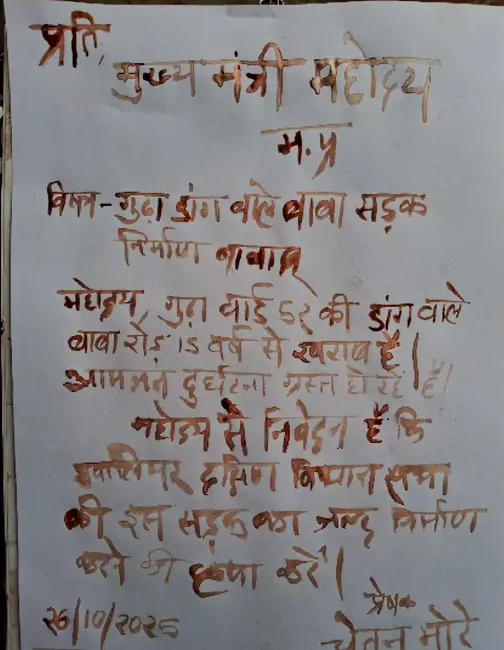 प्रति,
मुख्य मंत्री महोदय
म.प्र
विषय - गुढ़ा डांग वाले बाबा सड़क
निर्माण बाबत्
महोदय, गुढ़ा वार्ड 52 की डांग वाले
बाबा रोड़ 15 वर्ष से खराब है|
आमजन दुर्घटना ग्रस्त हो रहे है|
महोदय से निवेदन है कि
ग्वालियर दक्षिण विधान सभा
की इस सड़क का जल्द निर्माण
करने की कृपा करें|
प्रेषक
26/10/2025
चेतन मोरे